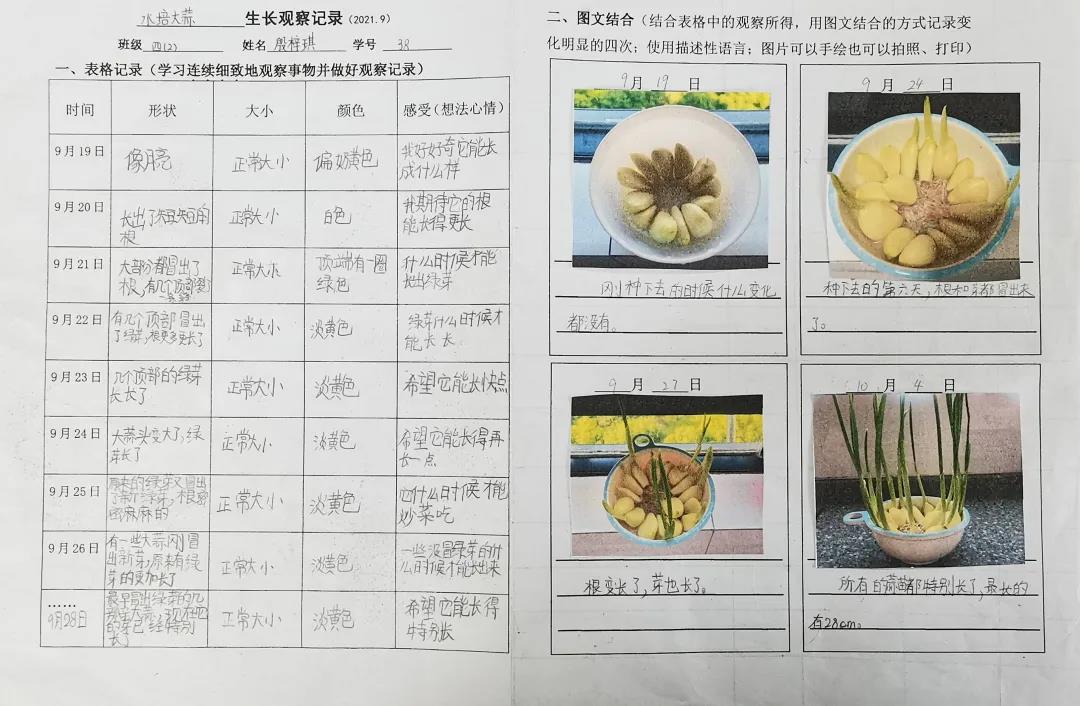 水培大蒜 生长观察记录（2021.9）
班级 四(2) 姓名 殷梓琪 学号 38
一、表格记录（学习连续细致地观察事物并做好观察记录）
时间 形状 大小 颜色 感受（想法心情）
9月19日 像月亮 正常大小 偏奶黄色 我好好奇它能长
成什么样
9月20日 长出了短短的
根 正常大小 白色 我期待它的根
能长得更长
9月21日 大部分都冒出了
根，有几个顶部 正常大小 顶端有一圈
绿色 什么时候才能
长出绿芽
9月22日 有几个顶部冒出
了绿芽，根更多更长了 正常大小 淡黄色 绿芽什么时候才
能长长
9月23日 几个顶部的绿芽
长长了 正常大小 淡黄色 希望它能长快点
9月24日 大蒜头变大了，绿
芽长了 正常大小 淡黄色 希望它能长得再
长一点
9月25日 的绿芽又冒出
了新绿芽，根密
密麻麻的 正常大小 淡黄色 它什么时候才能
炒菜吃
9月26日 有一些大蒜刚冒
出新芽，原来有绿
芽的更加长了 正常大小 淡黄色 一些没冒绿芽的什
么时候才能长出来
……
9月28日 最早冒出绿芽的几
大蒜，现在它
的芽已经特别
长了 正常大小 淡黄色 希望它能长得
特别长
二、图文结合（结合表格中的观察所得，用图文结合的方式记录变
化明显的四次；使用描述性语言；图片可以手绘也可以拍照、打印）
9月19日
刚种下去的时候什么变化
都没有。
9月24日
种下去的第六天，根和芽都冒出来
了。
9月27日
根变长了，芽也长了。
10月4日
所有的蒜苗都特别长了，最长的
有28cm。